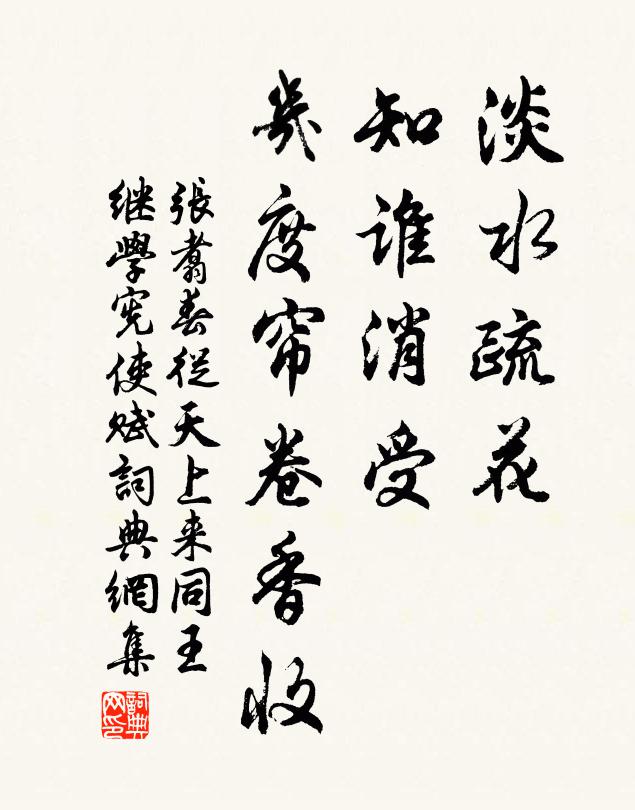 淡水疏花
知谁消受
幾度帘卷香收
張翥春從天上来同王
继學宪使赋詞典網集
詞典网印